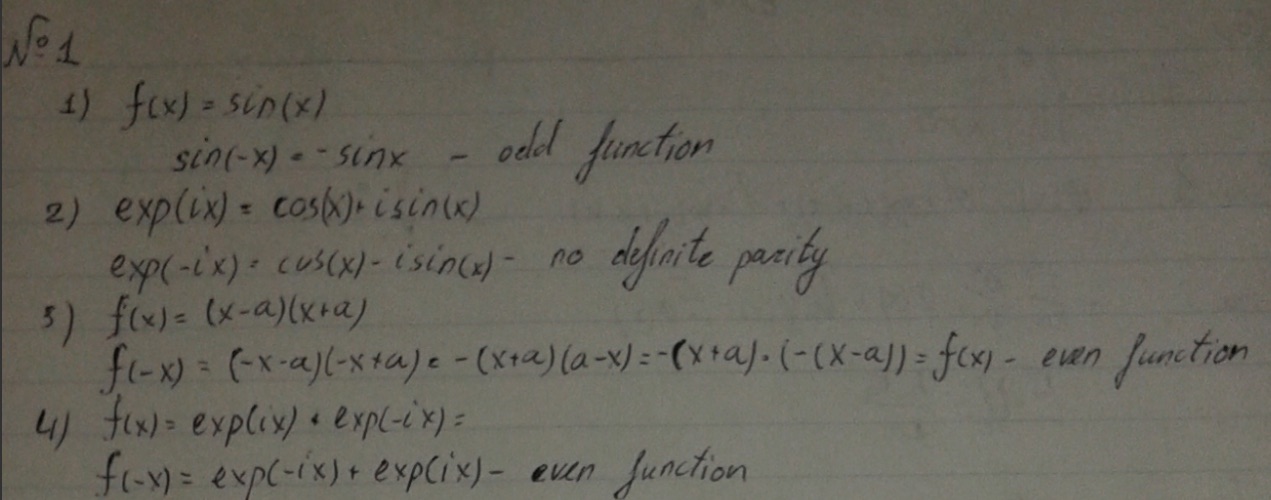 №1
1) f(x) = sin(x)
sin(-x) = -sinx - odd function
2) exp(ix) = cos(x)+isin(x)
exp(-ix) = cos(x)-isin(x) - no definite parity
3) f(x) = (x-a)(x+a)
f(-x) = (-x-a)(-x+a) = -(x+a)(a-x) = -(x+a)·(-(x-a)) = f(x) - even function
4) f(x) = exp(ix) + exp(-ix) =
f(-x) = exp(-ix) + exp(ix) - even function